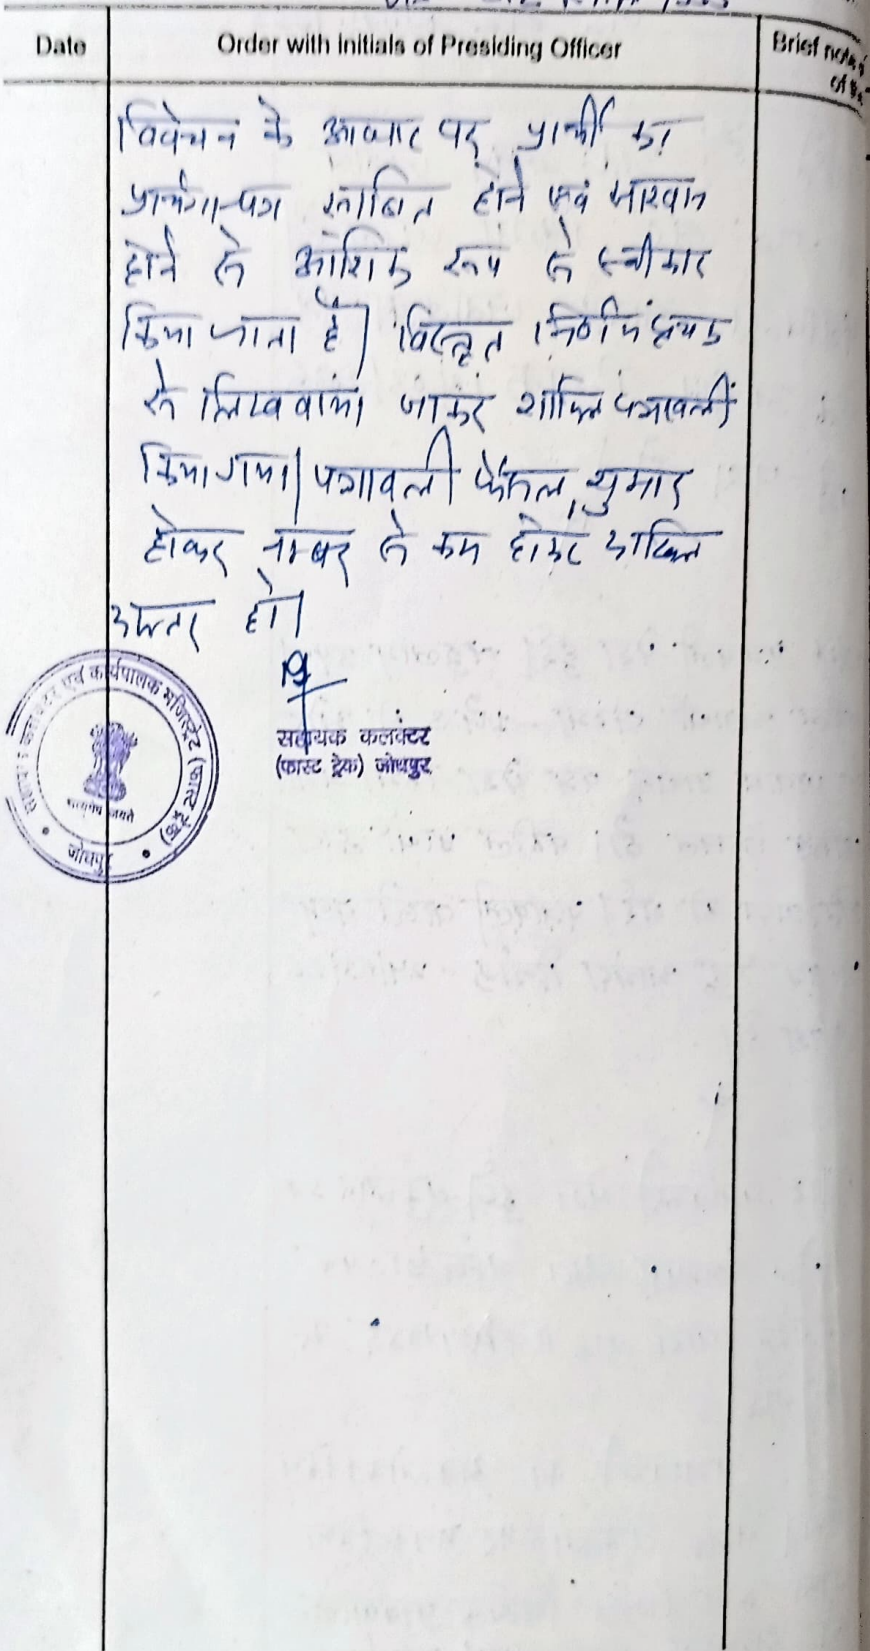 Date
Order with initials of Presiding Officer
Brief note
of
विवेचन के आधार पर प्रार्थी का
प्रार्थना-पत्र साबित होने एवं सारवान
होने से आंशिक रूप से स्वीकार
किया जाता है। विस्तृत निर्णय पृथक
से लिखवाया जाकर शामिल पत्रावली
किया गया। पत्रावली फैसल शुमार
होकर नम्बर से कम होकर दाखिल
दफ्तर हो।
सहायक कलक्टर
(फास्ट ट्रेक) जोधपुर
कलक्टर एवं कार्यपालक मजिस्ट्रेट (फास्ट ट्रेक)
सत्यमेव जयते
जोधपुर